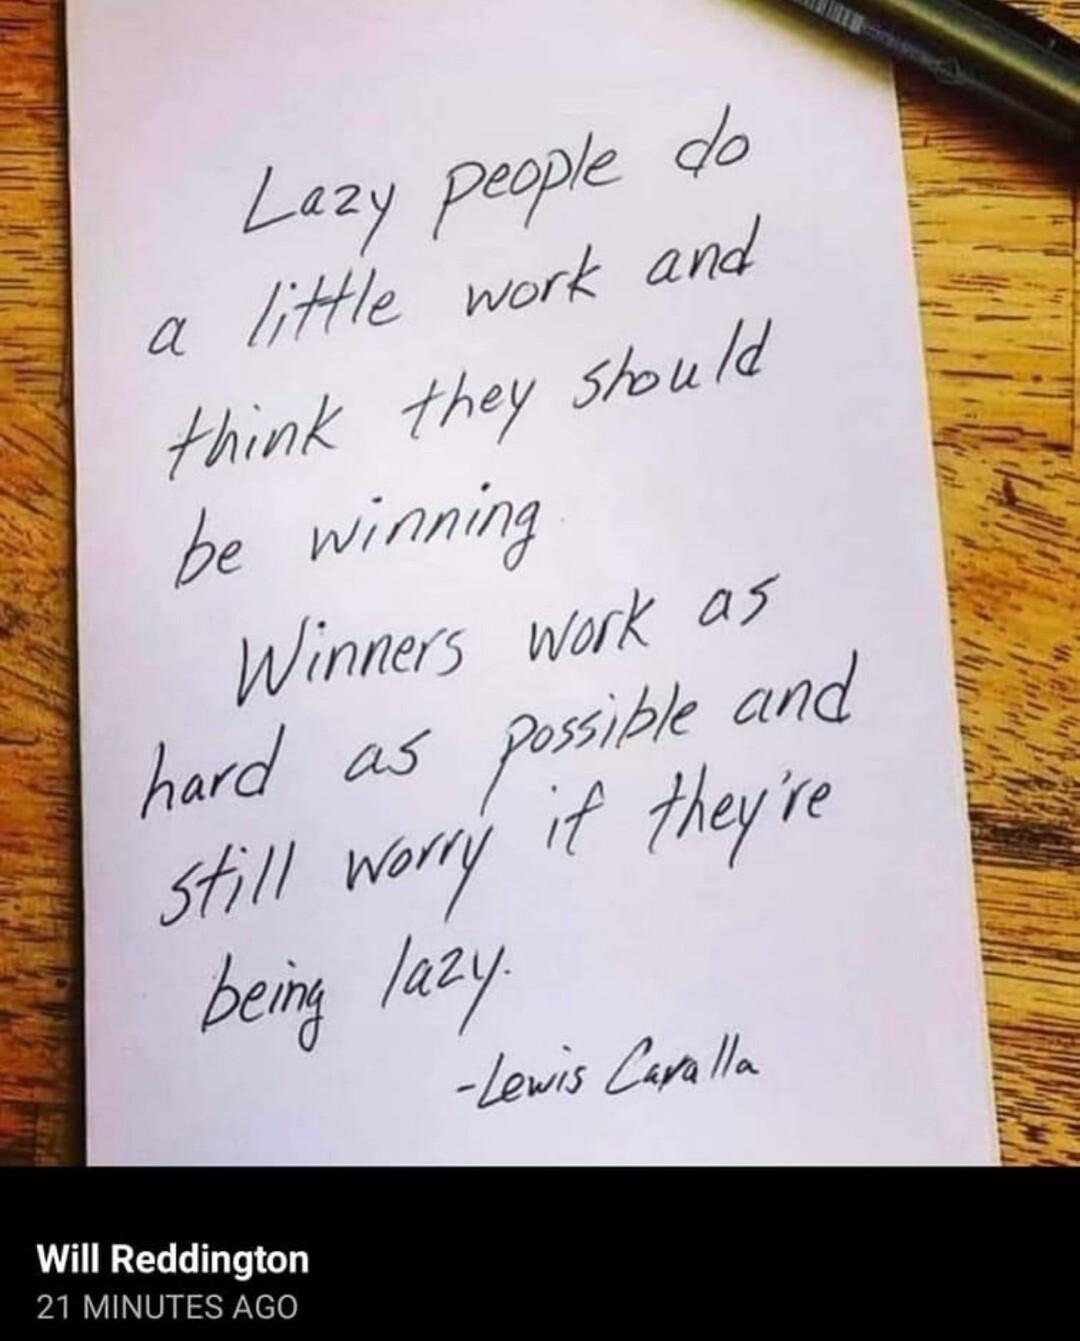 Lazy people do
a little work and
think they should
be winning.
Winners work as
hard as possible and
still worry if they're
being lazy.
-Lewis Caralla
Will Reddington
21 MINUTES AGO